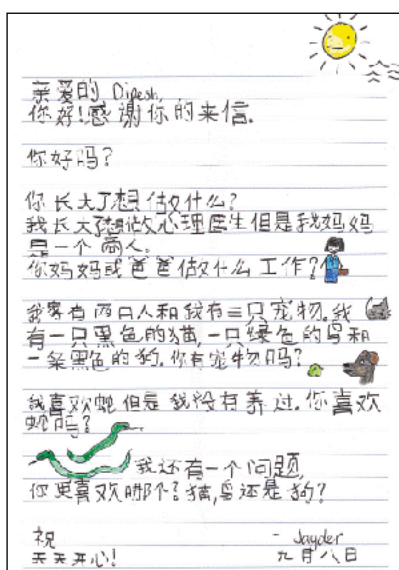 亲爱的 Dipesh,
你好!感谢你的来信.
你好吗?
你长大了想做什么?
我长大了想做心理医生但是我妈妈
是一个商人.
你妈妈或爸爸做什么工作?
我家有两口人和我有三只宠物.我
有一只黑色的猫,一只绿色的鸟和
一条黑色的狗.你有宠物吗?
我喜欢蛇但是我没有养过.你喜欢
蛇吗?
我还有一个问题,
你更喜欢哪个?猫,鸟还是狗?
祝 - Jayder
天天开心! 九月八日